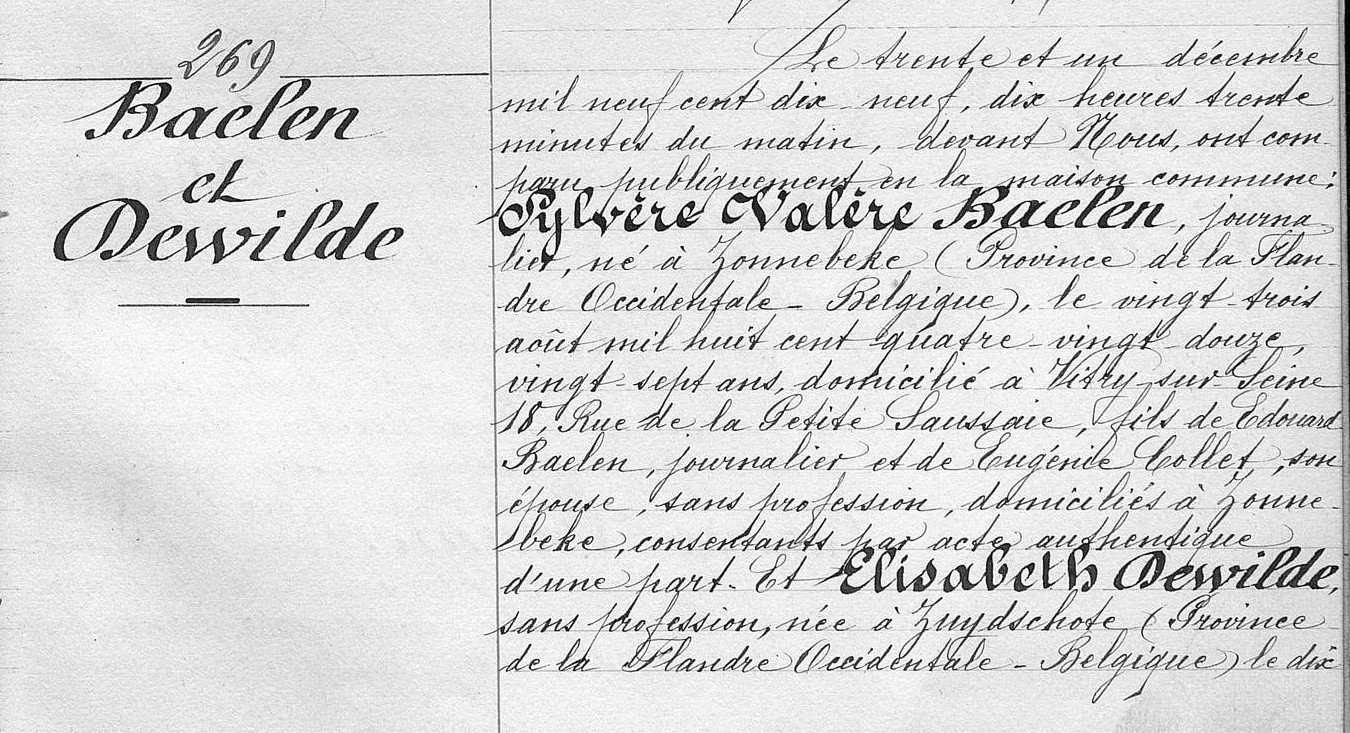 269
Baelen
et
Dewilde
Le trente et un décembre
mil neuf cent dix neuf, dix heures trente
minutes du matin, devant Nous, ont com-
paru publiquement en la maison commune:
Sylvère Valère Baelen, journa-
lier, né à Zonnebeke (Province de la Flan-
dre Occidentale - Belgique), le vingt trois
août mil huit cent quatre-vingt-douze,
vingt-sept ans, domicilié à Vitry-sur-Seine
18, Rue de la Petite Saussaie, fils de Edouard
Baelen, journalier et de Eugénie Collet, son
épouse, sans profession, domiciliés à Zonne-
beke, consentants par acte authentique
d'une part. Et Elisabeth Dewilde,
sans profession, née à Zuydschote (Province
de la Flandre Occidentale - Belgique) le dix